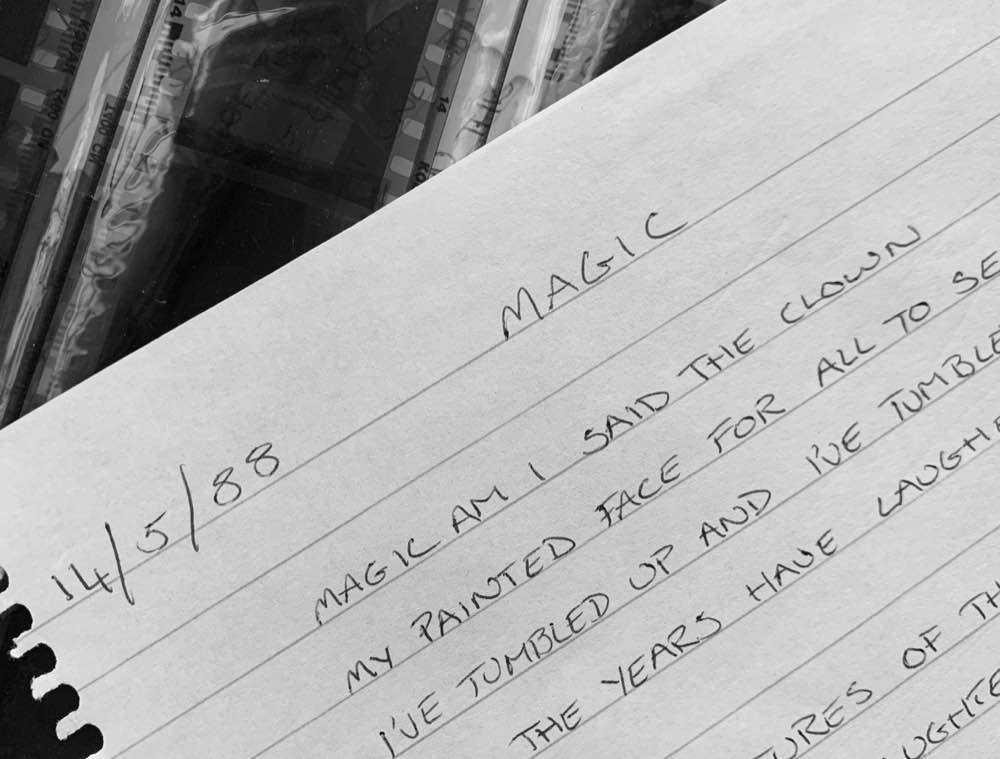 MAGIC
14/5/88
MAGIC AM I SAID THE CLOWN
MY PAINTED FACE FOR ALL TO SE
I'VE TUMBLED UP AND I'VE TUMBLE
THE YEARS HAVE LAUGHE
TURES OF TH
UGHTE
14
14